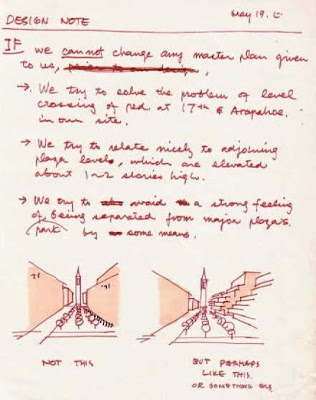 DESIGN NOTE
May 19.
IF we cannot change any master plan given
to us, prior to our design,
→. We try to solve the problem of level
crossing of ped. at 17th & Arapahoe.
in own site.
→ We try to relate nicely to adjoining
plaza levels, which are elevated
about 1~2 stories high.
→ We try to avoid a strong feeling
of being separated from major plazas.
park by some means.
NOT THIS
BUT PERHAPS
LIKE THIS.
OR SOMETHING ELSE